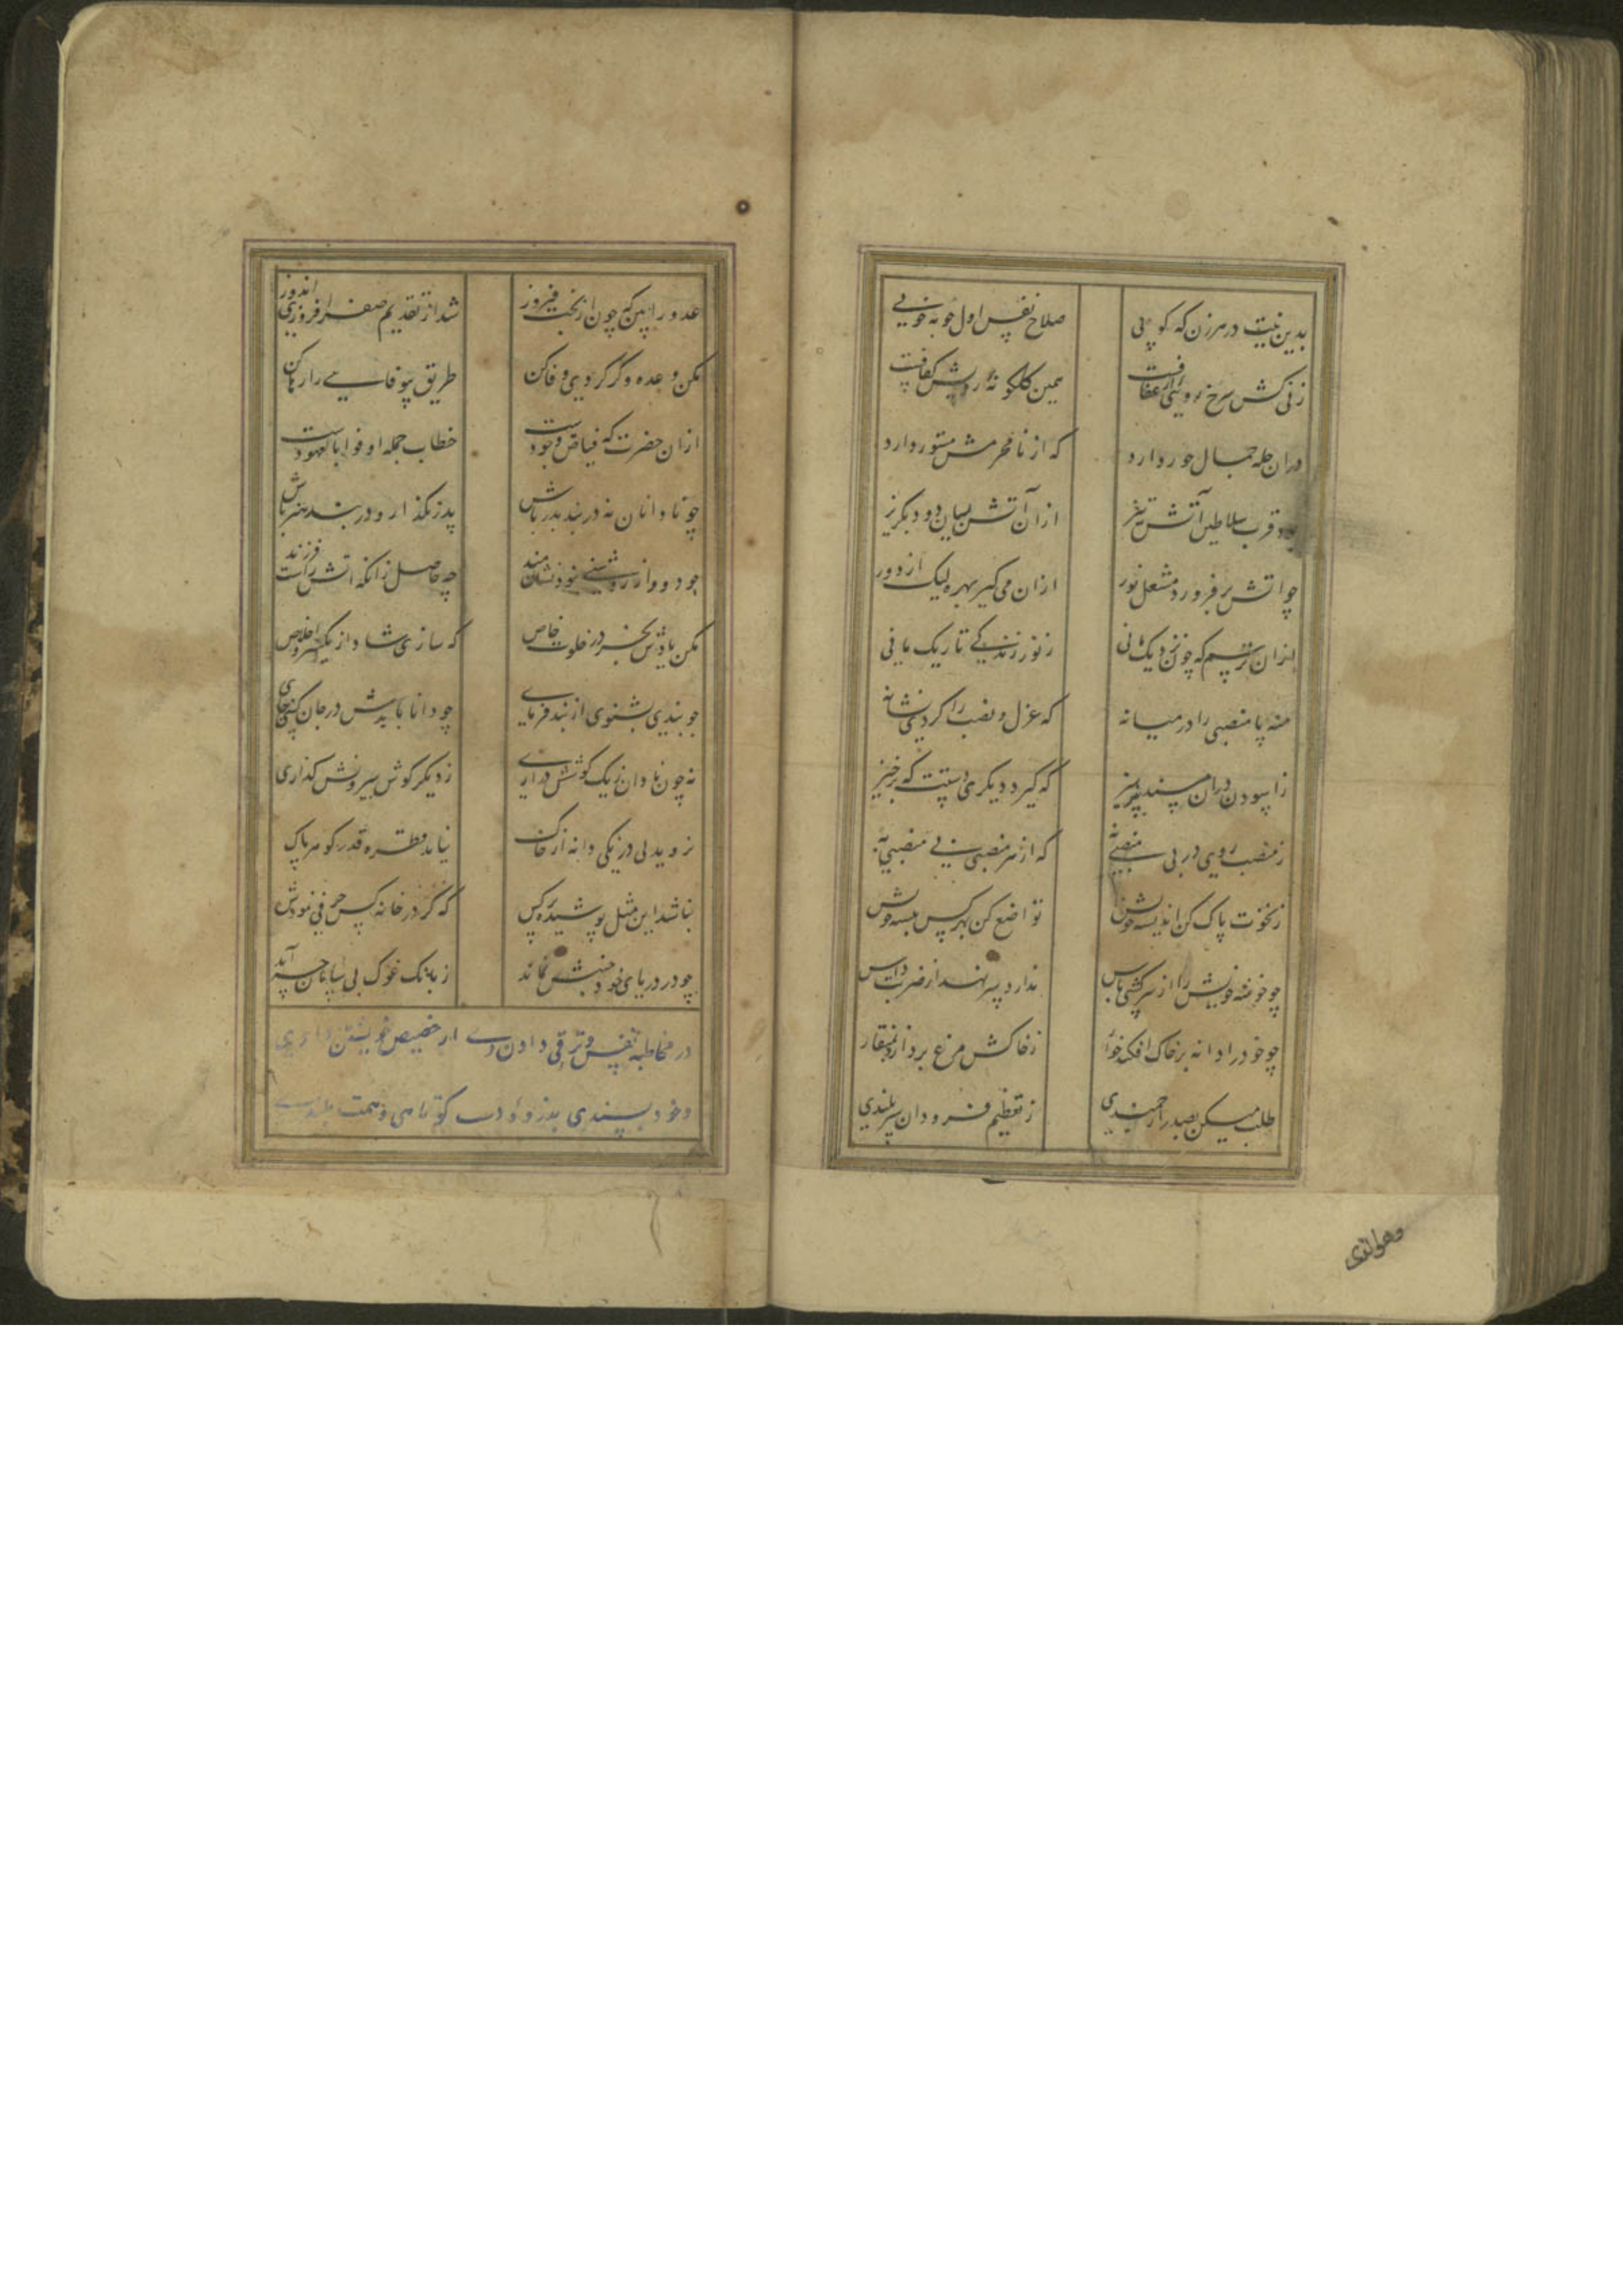 بدین نیت در هر زن که کوبی صلاح نفس اول جو به خوبی
زنی کش سرخ رویی از عفافست همین کلکونه رویش کفافست
در ان جله جمال حور دارد که از نامحرمش مستور دارد
بود قرب سلاطین آتش تیز ازان آتش بسان دود بگریز
چو اتش بر فروزد مشعل نور ازان می گیر بهره لیک از دور
ازان ترسم که چون نزدیک رانی ز نور زندگی تاریک مانی
منه پا منصبی را در میانه که عزل و نصب را کردی نشانه
ز اسودن دران مسند بپرهیز که گیرد دیگری دستت که برخیز
ز منصب روی در بی منصبی نه که از هر منصبی بی منصبی به
ز نخوت پاک کن اندیشه خویش تواضع کن بهر کس پیشه خویش
چو خوشه خویش را از سرکشی پاس ندارد سر نهد از ضربت داس
چو خود را دانه بر خاک افکند خوار ز خاکش مرغ بردارد بمنقار
طلب میکن بصدر ارجمندی ز تعظیم فرودان سربلندی
عدو را بین که چون از بخت فیروز شد از تقدیم صفر افزوزی اندوز
مکن وعده وگر کردی وفا کن طریق بیوفایی را رها کن
ازان حضرت که فیاض وجودست خطاب جمله اوفوا بالعهودست
چو نادانان نه در بند پدر باش پدر بگذار و در بند هنر باش
چو دود از روشنی نبود نشان مند چه حاصل زانکه اتش راست فرزند
مکن یادش بجز در خلوت خاص که سازی شاد از یکسر و اخلاص
چو بندی بشنوی از بند فرمای چو دانا بایدش در جان کنی جای
نه چون نادان ز یک گوشش در اری ز دیگر گوش بیرونش گذاری
نروید بی درنگی دانه از خاک نیابد قطره قدر گوهر پاک
نباشد این مثل پوشیده بر کس که گر در خانه کس حرفی بودش
چو در دریای خود جنبش نماند ز بانک غوک بی سامان چه آید
در مخاطبه نفس و ترقی دادن وی از حضیض خویشتن داری
و خود پسندی بذروه ادب کوتاهی و همت بلندی